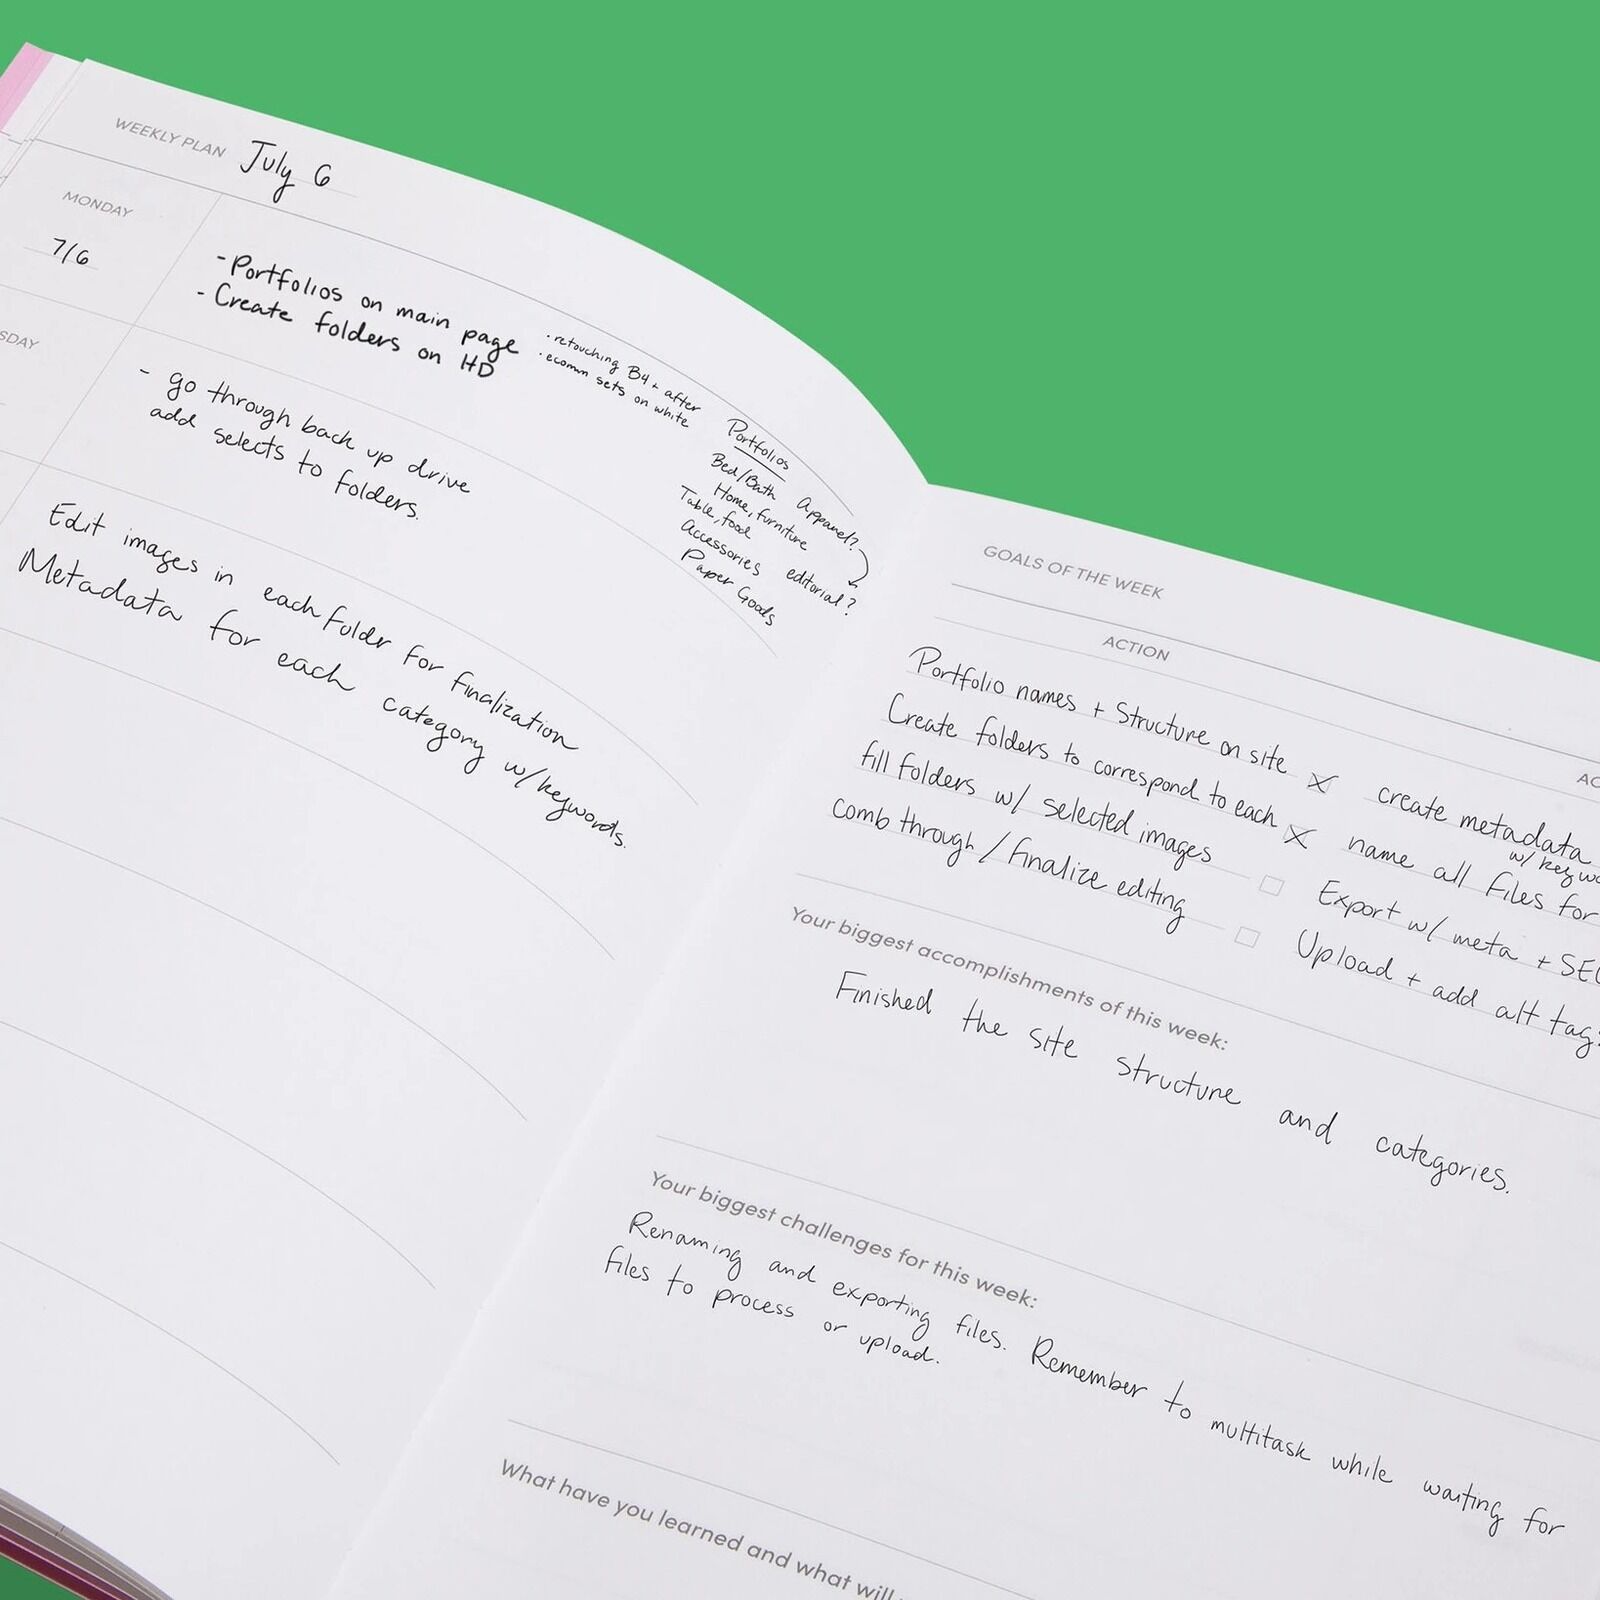 WEEKLY PLAN July 6
MONDAY
7/6
- Portfolios on main page
- Create folders on HD
· retouching B4 + after
· ecomm sets on white
Portfolios
Bed/Bath Apparel?
Home, furniture
Table, food
Accessories editorial?
Paper Goods
SDAY
- go through back up drive
add selects to folders.
Edit images in each folder for finalization
Metadata for each category w/keywords.
GOALS OF THE WEEK
ACTION
Portfolio names + Structure on site
Create folders to correspond to each
fill folders w/ selected images
comb through / finalize editing
AC
create metadata
w/ keywo
name all files for
Export w/ meta + SEO
Upload + add alt tags
Your biggest accomplishments of this week:
Finished the site structure and categories.
Your biggest challenges for this week:
Renaming and exporting files. Remember to multitask while waiting for
files to process or upload.
What have you learned and what will